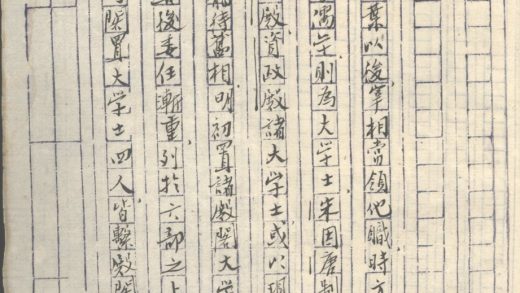 葉以後宰相常領他職時方
偶望則為大学士宋因唐制
殿資政殿諸大学士或以現
待舊相明初置諸殿閣大学
後委任漸重列於六部之上
閣置大学士四人皆繫殿閣